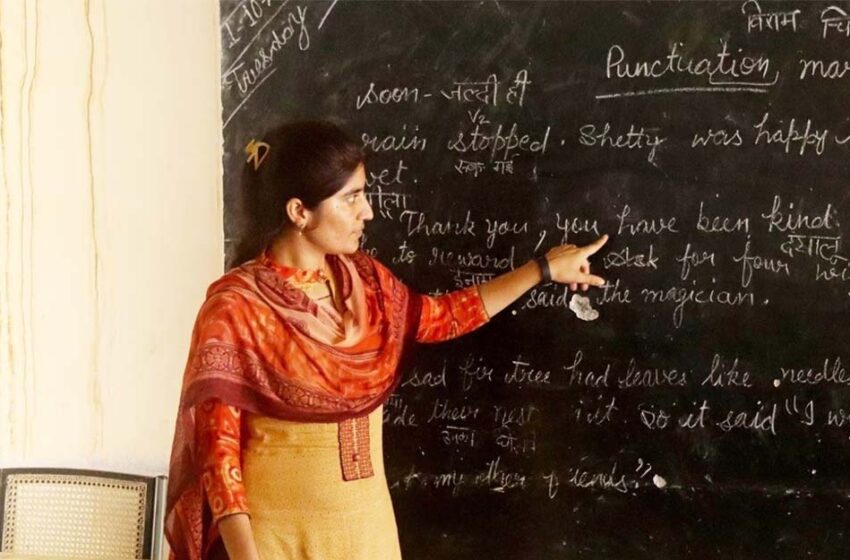 1-10-
Tuesday
विराम
Punctuation mar
soon - जल्दी ही
V2
rain stopped. Shetty was happy
रुक गई
wet.
"Thank you, you have been kind.
दयालु
to reward Ask for four
इनाम
said the magician.
sad fir tree had leaves like needles
their nest in it. So it said "I w
my other friends".